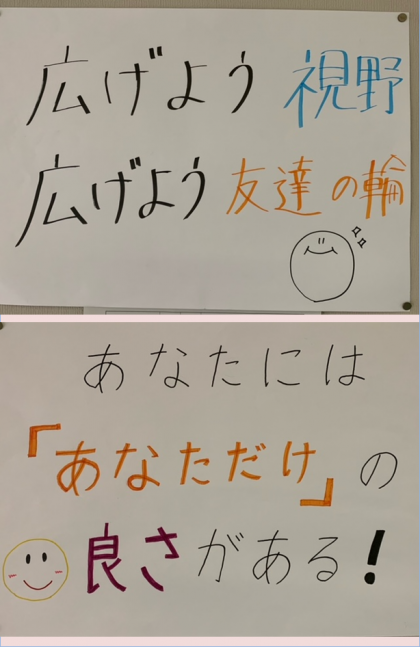 広げよう 視野
広げよう 友達の輪
あなたには
「あなただけ」の
良さがある!